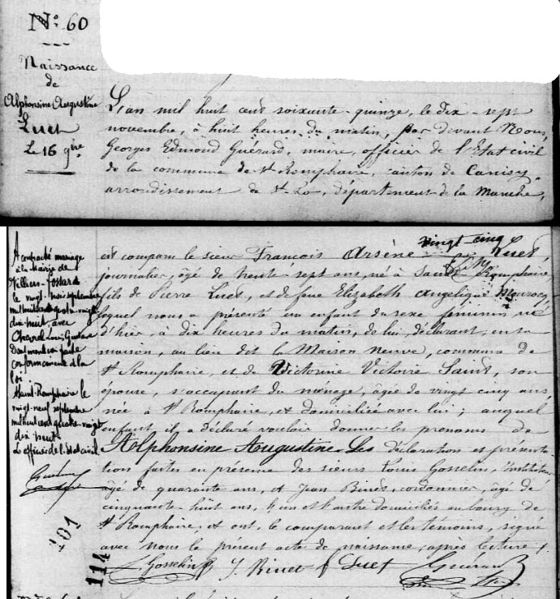 N° 60
Naissance
de
Alphonsine Augustine
Luet
Le 16 9bre
L'an mil huit cent soixante-quinze, le dix-sept
novembre, à huit heures du matin, par devant Nous
Georges Edmond Guérard, maire, officier de l'Etat civil
de la commune de St Romphaire, canton de Canisy,
arrondissement de St Lo, département de la Manche,
vingt cinq
est comparu le sieur François Arsène Luet,
journalier, âgé de sept ans, né à Saint Romphaire
fils de Pierre Luet, et de feue Elizabeth Angélique
lequel nous a présenté un enfant du sexe féminin né
d'hier à dix heures du matin, de lui, déclarant, en sa
maison, au lieu dit la Maison Neuve, commune de
St Romphaire, et de Victorine Victoire Saint, son
épouse, s'occupant du ménage, âgée de vingt cinq ans,
née à St Romphaire, et domiciliée avec lui; auquel
enfant, il a déclaré vouloir donner les prénoms de
Alphonsine Augustine. Les déclaration et présenta-
tion faites en présence des sieurs Louis Gosselin, instituteur
âgé de quarante ans, et Jean Binet, cordonnier, âgé de
cinquante-huit ans, l'un et l'autre domiciliés au bourg de
St Romphaire, et ont, le comparant et les témoins, signé
avec nous le présent acte de naissance, après lecture.
L. Gosselin J. Binet Luet Guérard
A contracté mariage
à la Mairie de
Villiers-Fossard
le vingt-trois septembre
mil huit cent quatre-vingt
dix huit avec
Louis Gustave
conformément à la
loi
Saint Romphaire le
vingt-neuf septembre
mil huit cent quatre-vingt
dix huit
L'officier de l'état civil
Guérard
401
114